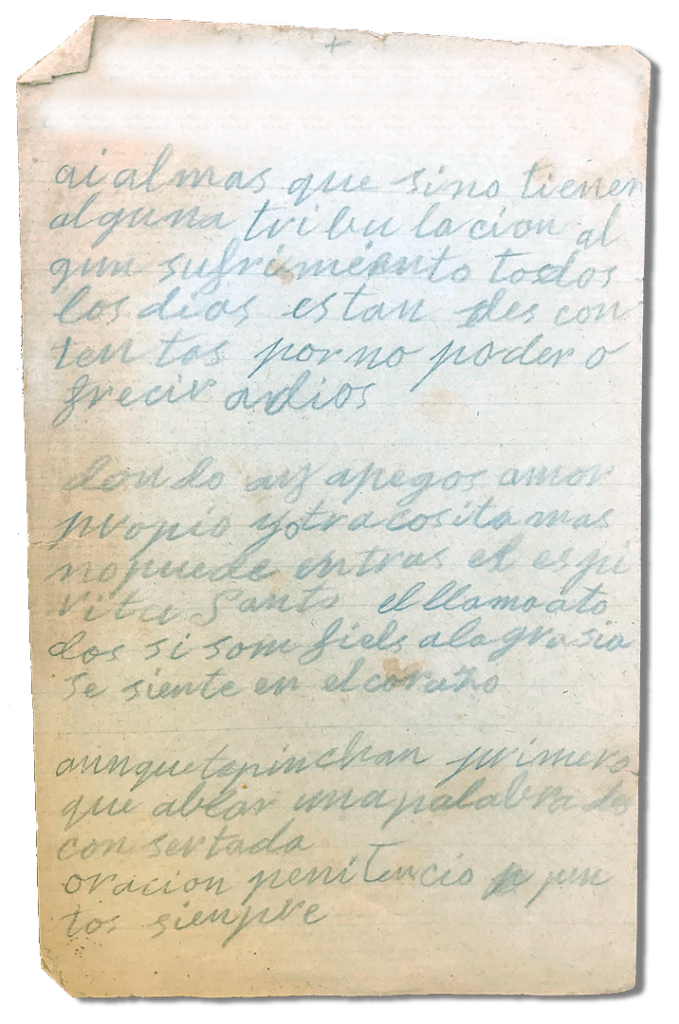 +
ai almas que sino tienen
alguna tribu lacion al
gun sufrimiento todos
los dias estan des con
ten tas por no poder o
frecir adios
dondo ay apegos amor
propio yotra cosita mas
no puede entras el espi
ritu Santo el llamaato
dos si som fiels ala grasia
se siente en el corazo
aunquete pinchan primero
que ablar una palabra des
con sertada
oracion penitencio jun
tos sienpre